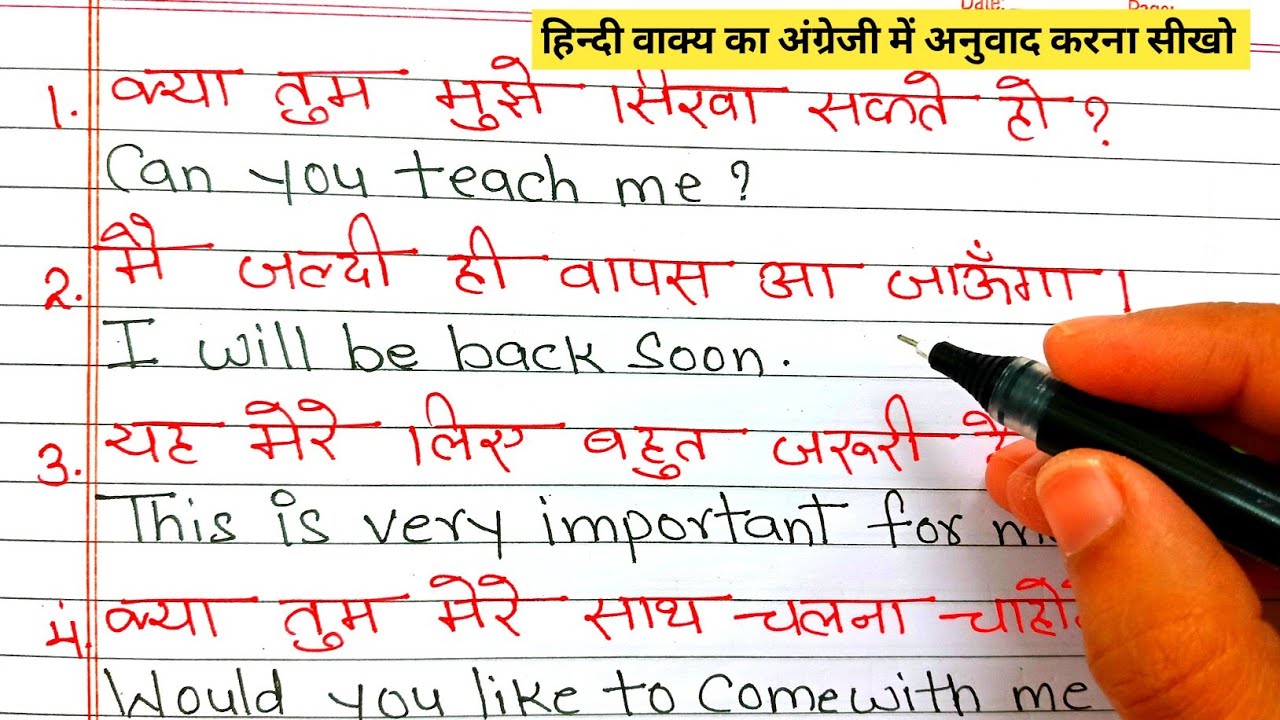 Date:
Page:
हिन्दी वाक्य का अंग्रेजी में अनुवाद करना सीखो
1. क्या तुम मुझे सिखा सकते हो?
Can you teach me?
2. मै जल्दी ही वापस आ जाऊँगा।
I will be back soon.
3. यह मेरे लिए बहुत जरूरी
This is very important for
4. क्या तुम मेरे साथ चलना
Would you like to come with me